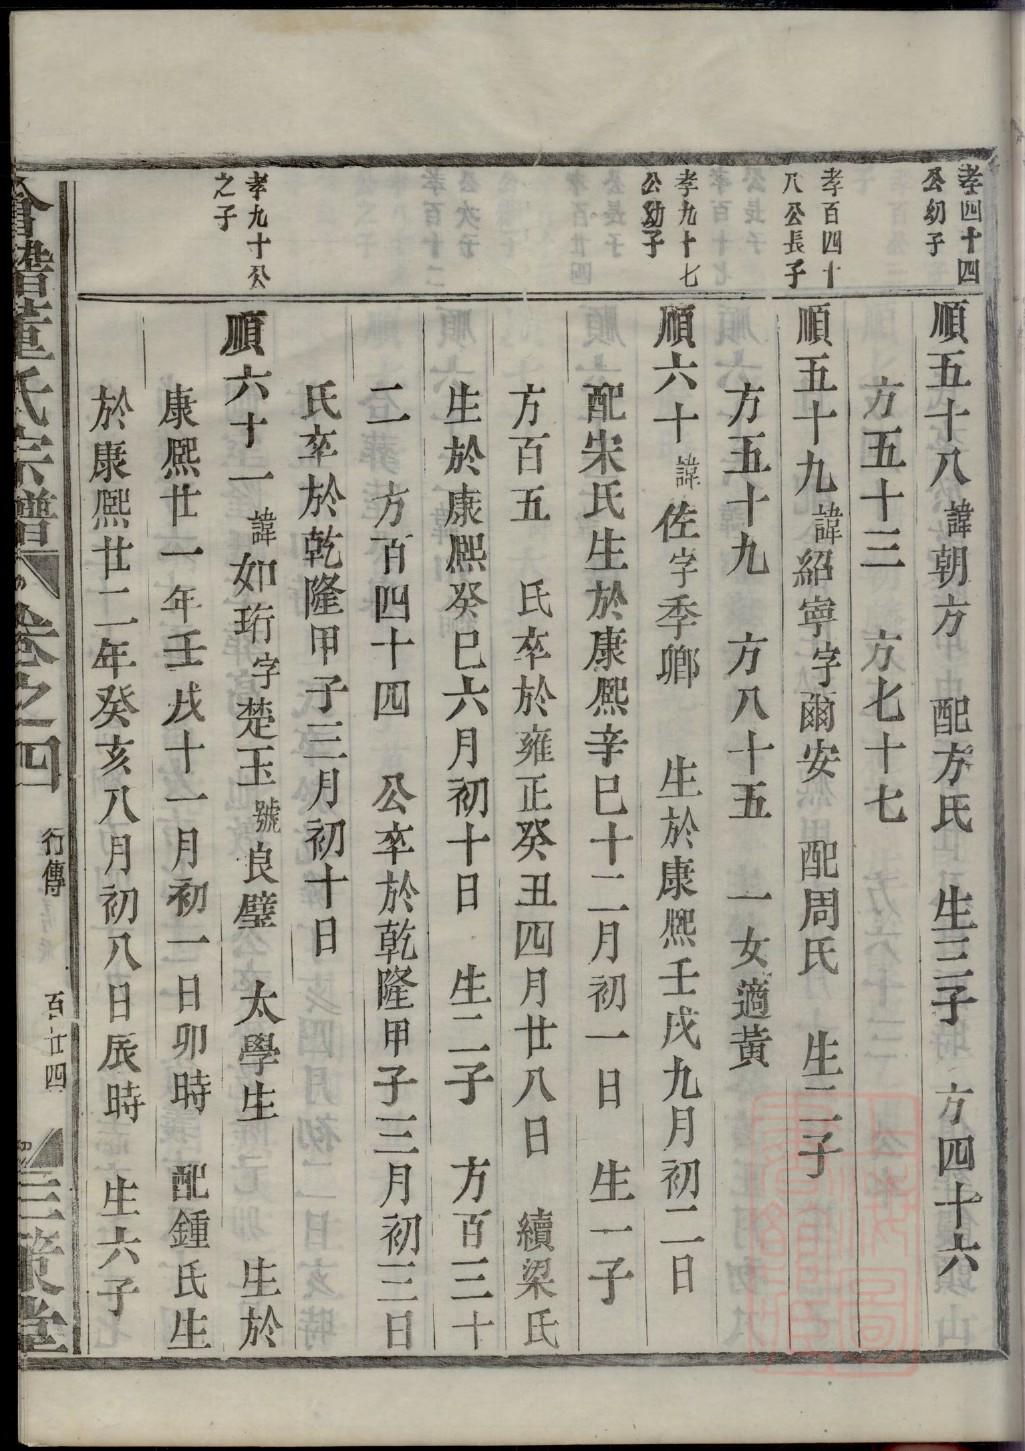 孝四十四
公幼子
順五十八諱朝方 配方氏 生三子 方四十六
方五十三 方七十七
孝百四十
八公長子
順五十九諱紹寧字爾安 配周氏 生二子
方五十九 方八十五 一女適黃
孝九十七
公幼子
順六十諱佐字季鄉 生於康熙壬戌九月初二日
配宋氏生於康熙辛巳十二月初一日 生一子
方百五 氏卒於雍正癸丑四月廿八日 續梁氏
生於康熙癸巳六月初十日 生二子 方百三十
二 方百四十四 公卒於乾隆甲子三月初三日
氏卒於乾隆甲子三月初十日
孝九十公
之子
順六十一諱如珩字楚玉號良璧 太學生 生於
康熙廿一年壬戌十一月初一日卯時 配鍾氏生
於康熙廿二年癸亥八月初八日辰時 生六子
會稽董氏宗譜 卷之四 行傳 百廿四 三策堂